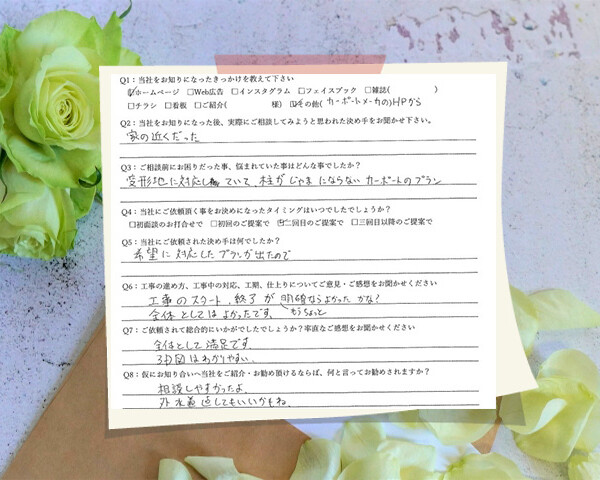 Q1：当社をお知りになったきっかけを教えて下さい
☑ホームページ □Web広告 □インスタグラム □フェイスブック □雑誌( )
□チラシ □看板 □ご紹介( 様) ☑その他(カーポートメーカのHPから
Q2：当社をお知りになった後、実際にご相談してみようと思われた決め手をお聞かせ下さい。
家の近くだった
Q3：ご相談前にお困りだった事、悩まれていた事はどんな事でしたか？
変形地に対応していて、柱がじゃまにならないカーポートのプラン
Q4：当社にご依頼頂く事をお決めになったタイミングはいつでしたでしょうか？
□初面談のお打合せで □初回のご提案で ☑二回目のご提案で □三回目以降のご提案で
Q5：当社にご依頼された決め手は何でしたか？
希望に対応したプランが出たので
Q6：工事の進め方、工事中の対応、工期、仕上りについてご意見・ご感想をお聞かせください
工事のスタート、終了がもうちょっと明確ならよかったかな！
全体としてはよかったです。
Q7：ご依頼されて総合的にいかがでしたでしょうか？率直なご感想をお聞かせください
全体として満足です。
3D図はわかりやすい。
Q8：仮にお知り合いへ当社をご紹介・お勧め頂けるならば、何と言ってお勧めされますか？
相談しやすかったよ。
してもいいかもね。